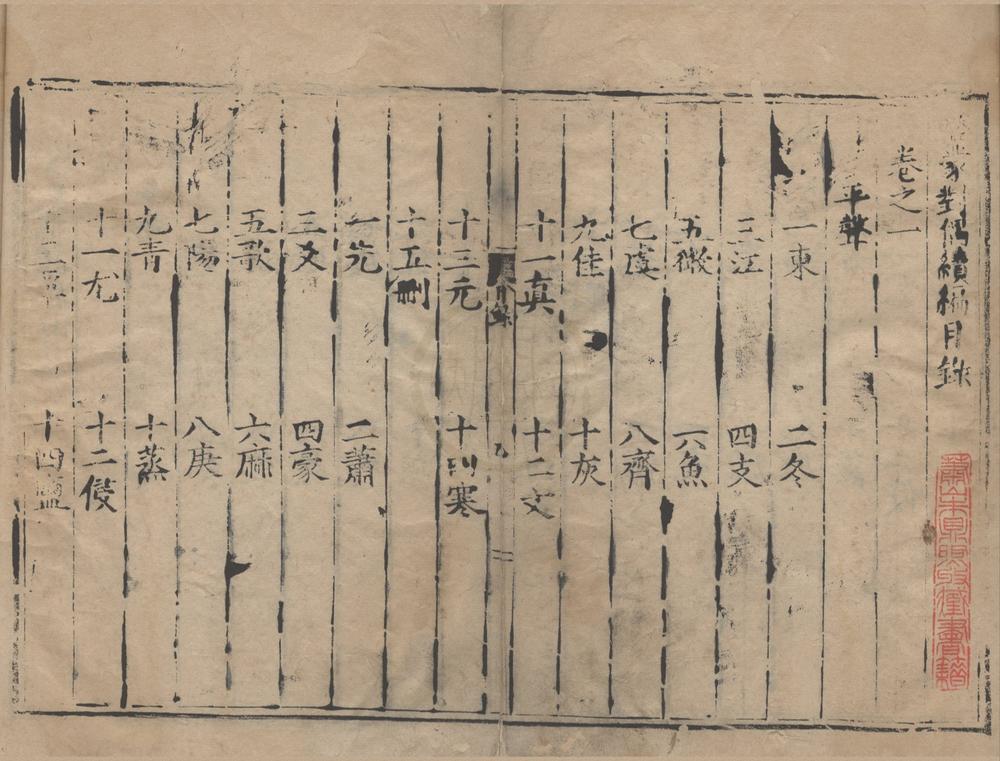 蒙對偶續編目錄
卷之一
平聲
一東 二冬
三江 四支
五微 六魚
七虞 八齊
九佳 十灰
十一真 十二文
目錄
十三元 十四寒
十五刪
一先 二蕭
三爻 四豪
五歌 六麻
七陽 八庚
九青 十蒸
十一尤 十二侵
十三覃 十四鹽